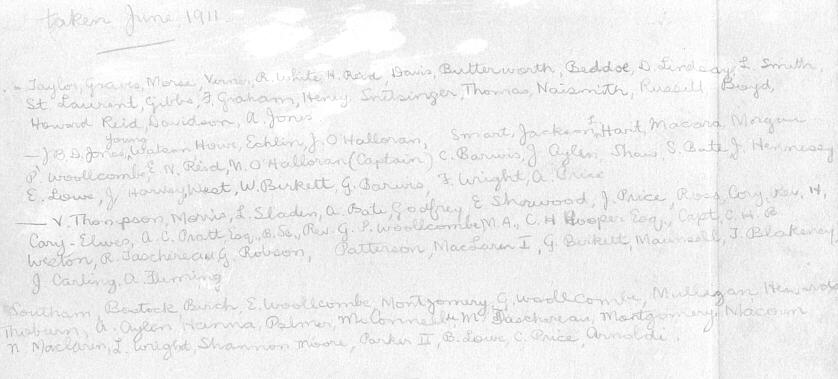 taken June, 1911
- Taylor, Graves, Morse, Verner, R. White, H. Reid, Davis, Butterworth, Beddoe, D. Lindsay, L. Smith,
St Laurent, Gibbs, F. Graham, Heney, Snitsinger, Thomas, Naismith, Russell, Boyd,
Howard Reid, Davidson, A. Jones
— J B. D. Jones, Young, Watson Howe, Echlin, J. O'Halloran, Smart, Jackson I, Hart, Macara, Morgan
P. Woollcombe, E N. Reid, M. O'Halloran (Captain) C. Barwis, J Aylen, Shaw, S. Bate J. Hennessy
E. Lowe, J Harvey, West, W. Birkett, G. Barwis, F. Wright, A. Price
— V. Thompson, Morris, L. Sladen, A. Bate, Godfrey, E Sherwood, J. Price, Ross, Cory, Rev. H,
Cary-Elwes, A. C. Pratt, Esq., B. Sc., Rev. G. P. Woollcombe M. A., C. H Hooper Esq., Capt. C. H. B
Weston, R. Taschereau, G. Robson, Patterson, MacLaren I, G. Birkett, Maunsell, T. Blakeney
J Carling, A. Fleming
Southam, Bostock, Birch, E. Woollcombe, Montgomery, G. Woollcombe, Mulligan, Heward
Thisburn, A. Aylen, Hanna, Palmer, McConnell, M. Taschereau, Montgomery, Macoun
N Maclaren, L. Wright, Shannon, Moore, Parker II, B. Lowe, C. Price, Arnoldi.